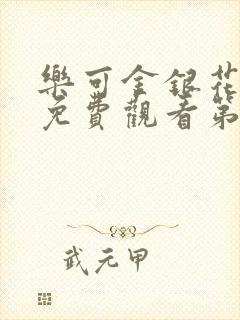 樂可金銀花
免費觀看第
武元甲